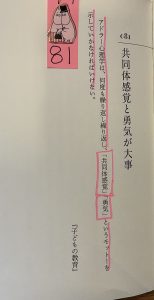 81
(81)
共同体感覚と勇気が大事
アドラー心理学は、何度も繰り返し繰り返し、「共同体感覚」「勇気」というモットーを
示していかなければいけない。
『子どもの教育』